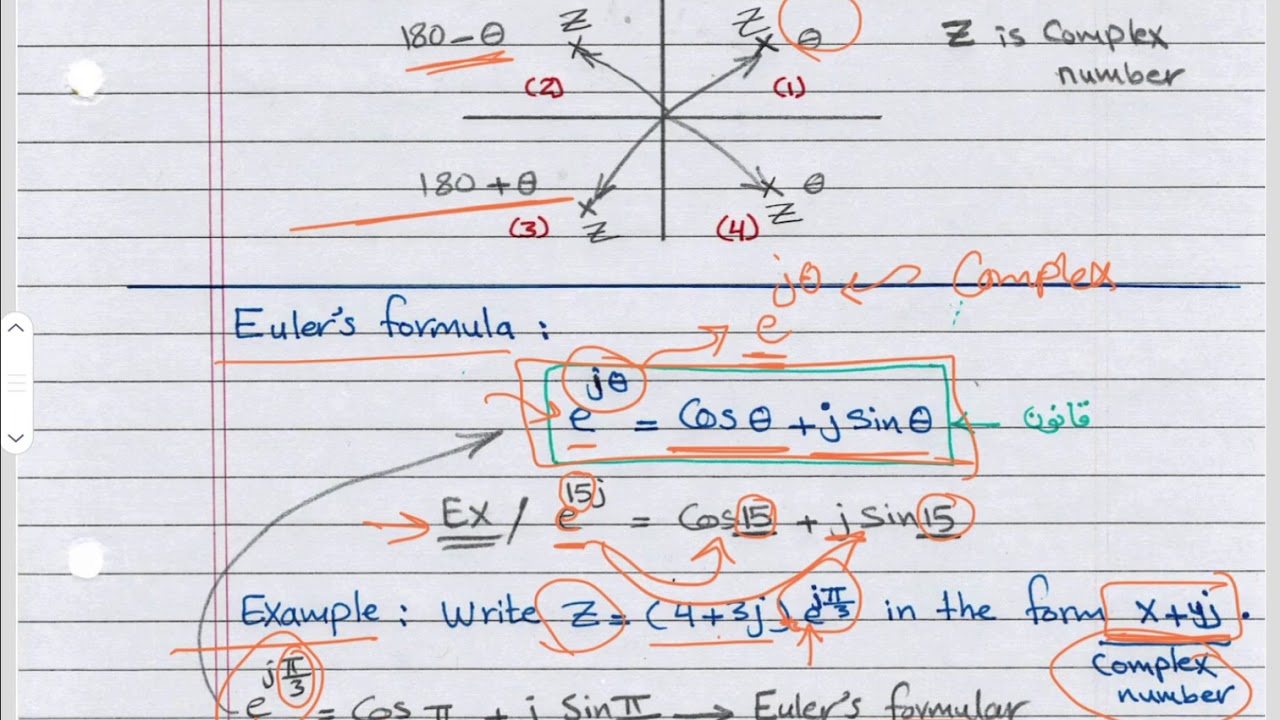 180-θ Z Z θ Z is Complex
(2) (1) number
180+θ θ
(3) Z (4) Z
jθ Complex
Euler's formula : e
e^jθ = Cosθ + j Sinθ قانون
Ex / e^15j = Cos15 + j Sin15
Example : Write Z = (4+3j) e^jπ/3 in the form x+yj .
Complex
number
e^jπ/3 = Cos π + j Sin π → Euler's formular